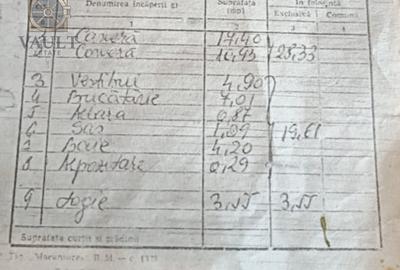 Denumirea încăperii și
Suprafața (mp)
In folosință
Exclusivă Comună
1 2 3 4
VAULT
ESTATE
Cameră 17,40
Cameră 10,93 28,33
3 Vestibul 4,90
4 Bucătărie 7,01
5 Cămară 0,87
6 Sas 1,09 19,61
7 Baie 4,20
8 Depozitare 0,29
9 Logie 3,55 3,55
Suprafața curții și grădinii